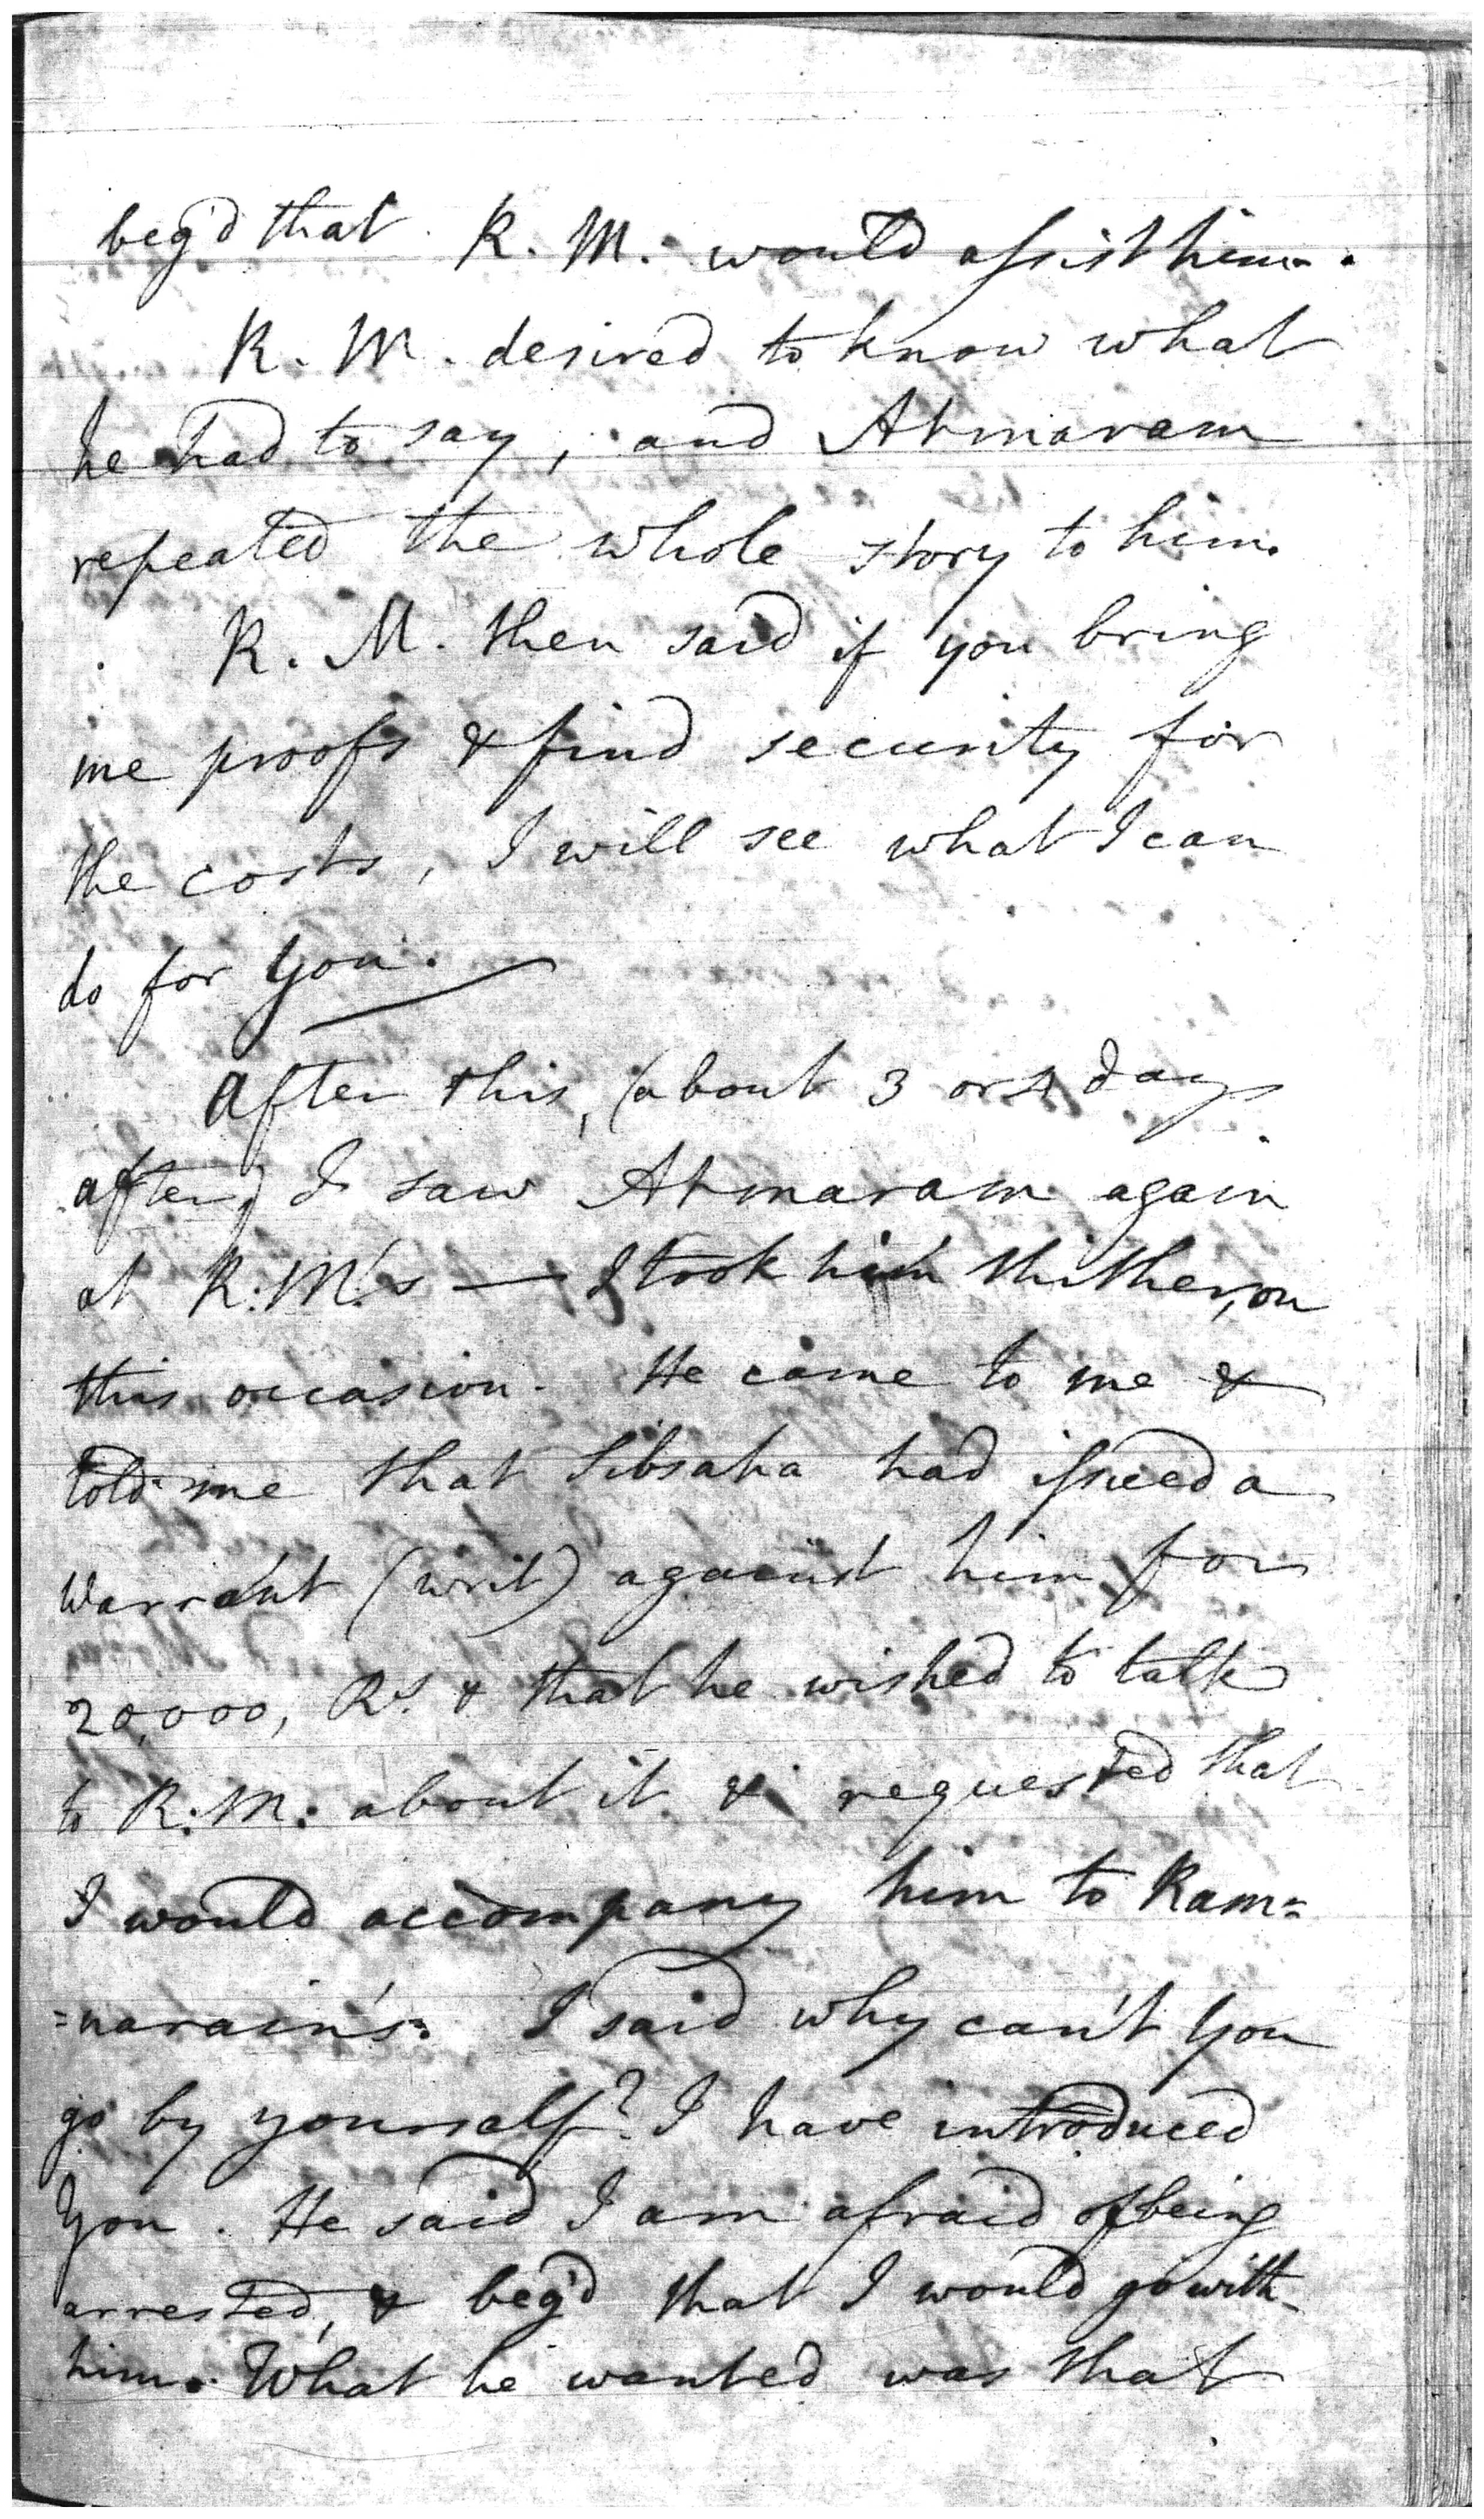 beg'd that R. M. would assist him.
R. M. desired to know what
he had to say, and Atmaram
repeated the whole story to him.
R. M. then said if you bring
me proofs & find security for
the costs, I will see what I can
do for You.
After this, (about 3 or 4 days
after) I saw Atmaram again
at R: M:'s — I took him thither, on
this occasion. He came to me &
told me that Sibsaha had issued a
Warrant (writ) against him for
20,000, Rs. & that he wished to talk
to R: M: about it & requested that
I would accompany him to Ram=
=narain's. I said why can't You
go by yourself? I have introduced
You. He said I am afraid of being
arrested, & beg'd that I would go with
him. What he wanted was that